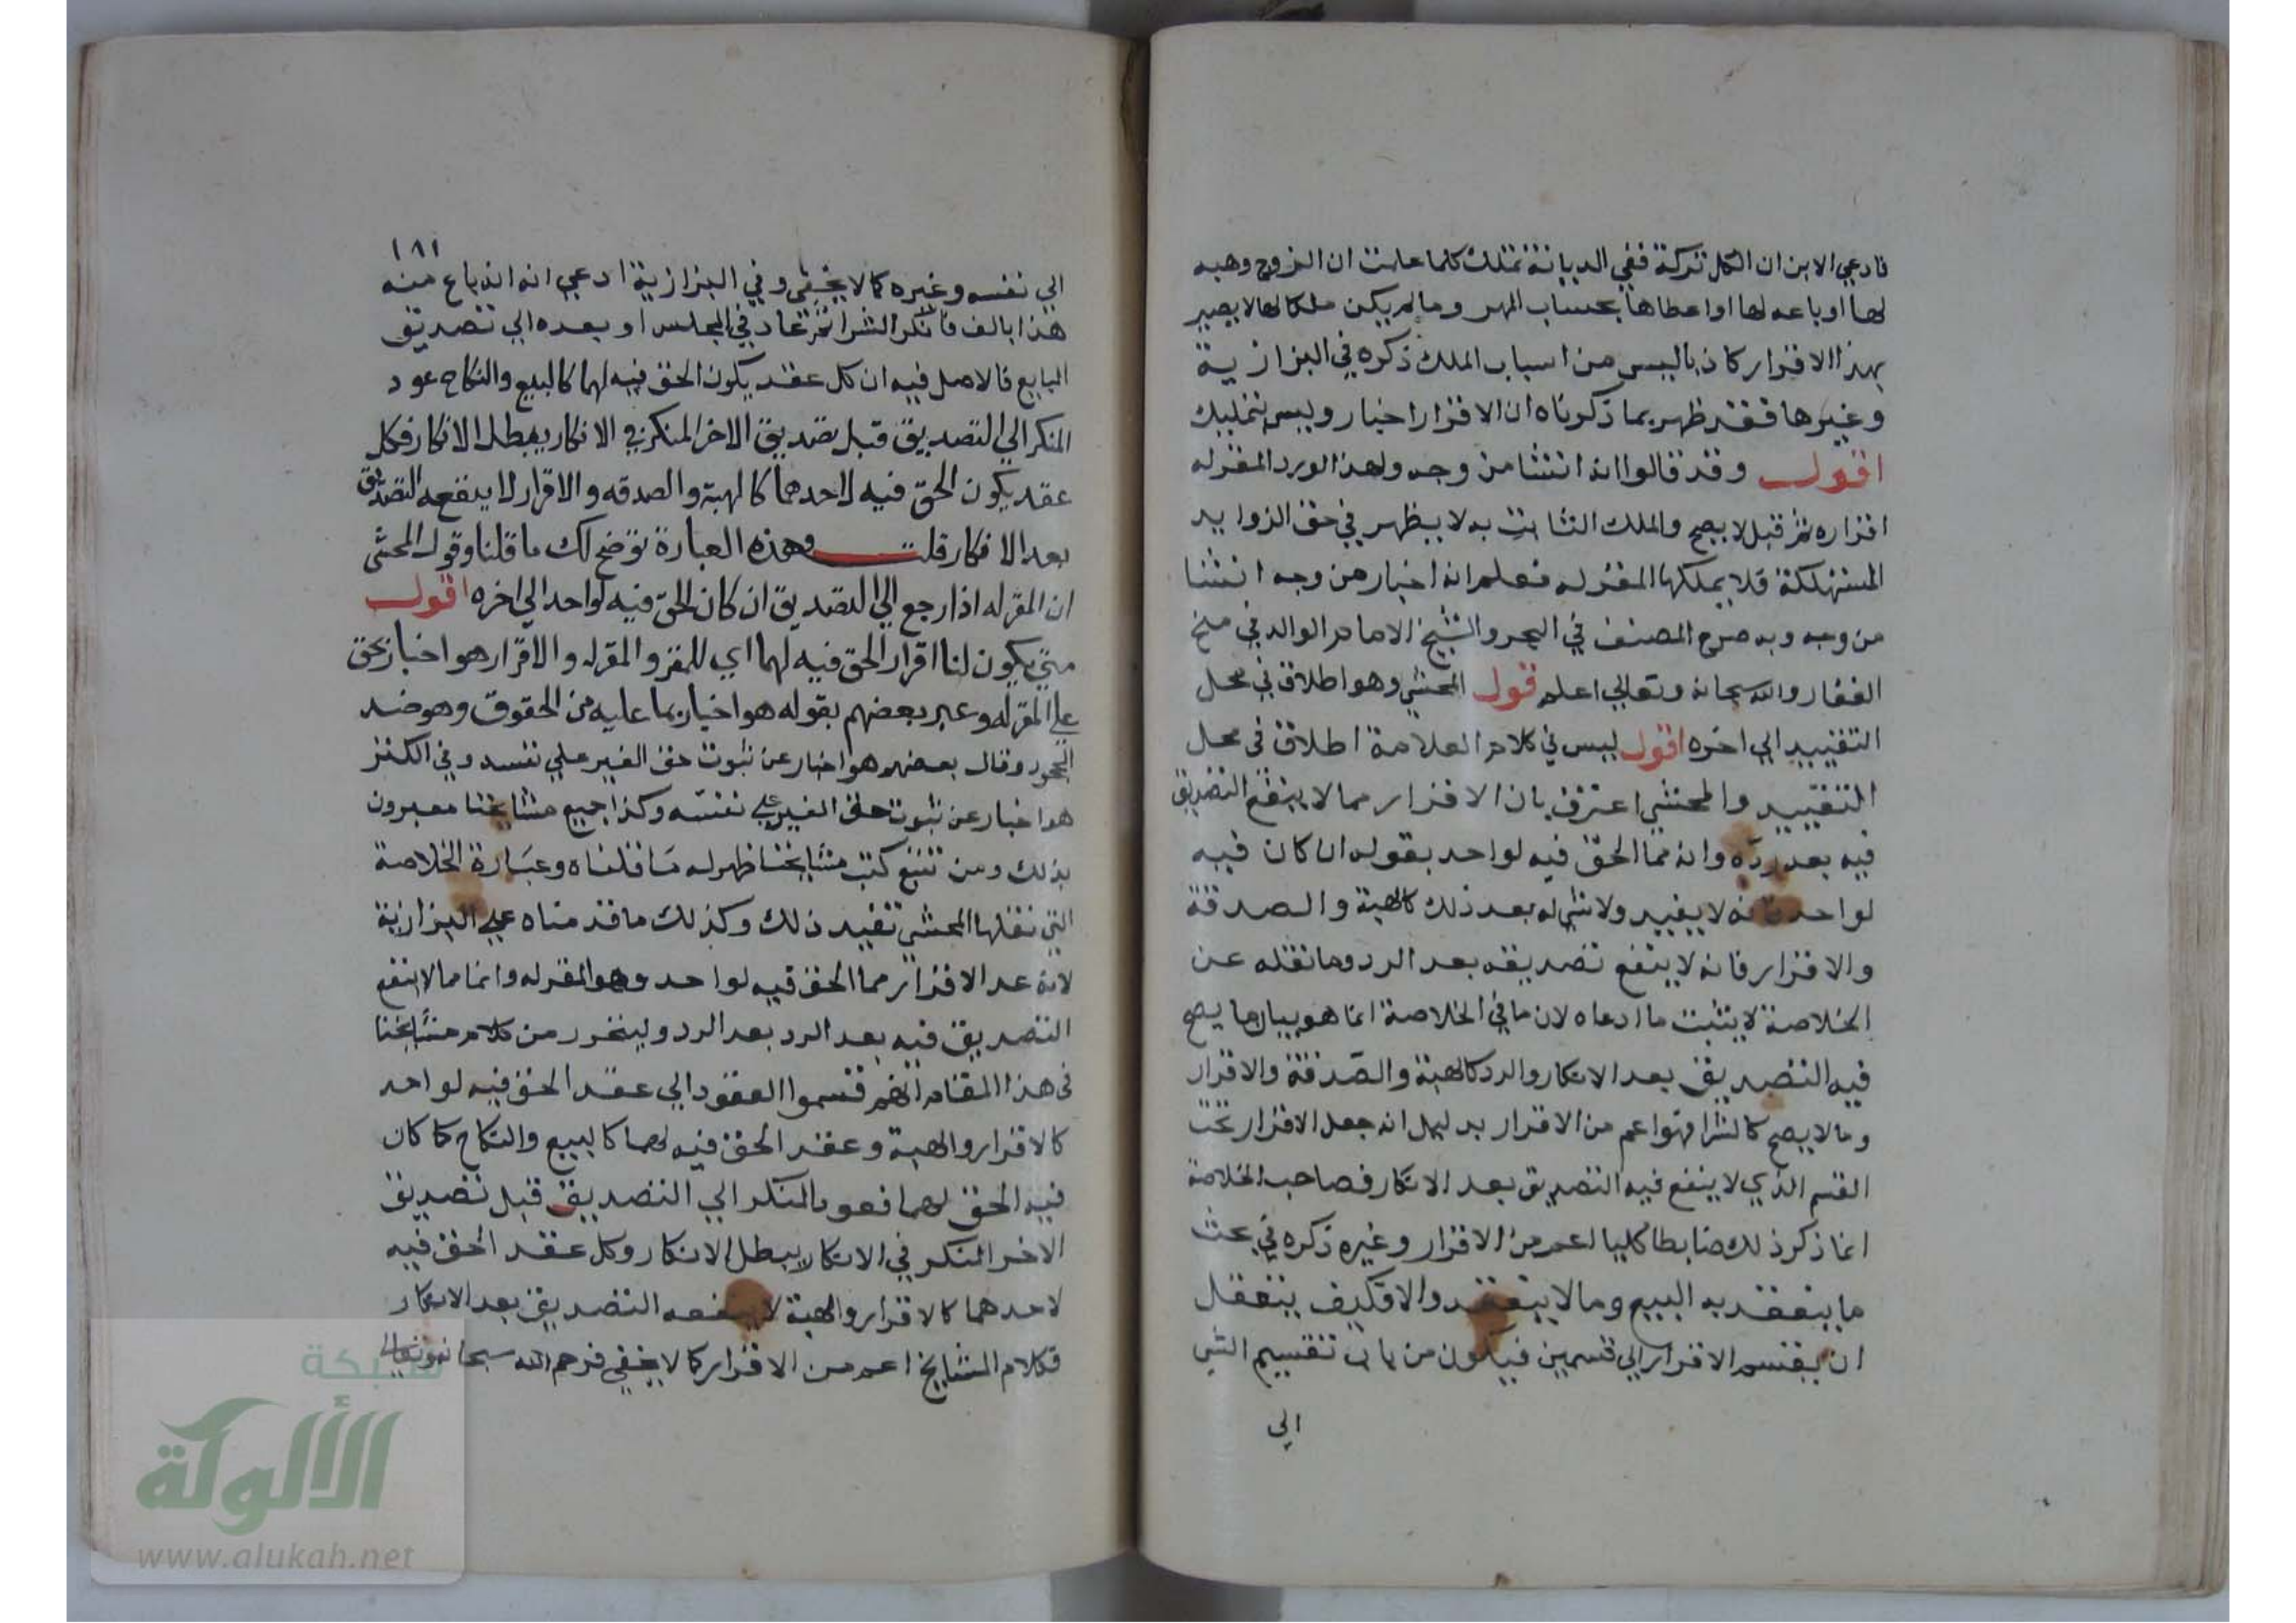 فادعي الابن ان الكل تركة ففي الديانة تمتلك كلما علمت ان الزوج وهبه
لها او باعه لها او اعطاها بحساب المهر وما لم يكن ملكا لها لا يصير
بهذا الاقرار كاذبا ليس من اسباب الملك ذكره في البزازية
وغيرها فقد ظهر بما ذكرناه ان الاقرار اخبار وليس بتمليك
اقول وقد قالوا انه انشا من وجه ولهذا لو رد المقر له
اقراره ثم قبل لا يصح والملك الثابت به لا يظهر في حق الزوايد
المستهلكة فلا يملكها المقر له فعلم انه اخبار من وجه انشا
من وجه وبه صرح المصنف في البحر والشيخ الامام الوالد في منح
الغفار والله سبحانه وتعالي اعلم قول المحشي وهو اطلاق في محل
التقييد الي اخره اقول ليس في كلام العلامة اطلاق في محل
التقييد والمحشي اعترف بان الاقرار مما لا ينفع التصديق
فيه بعد رده وانه مما الحق فيه لواحد بقوله ان كان فيه
لواحد فانه لا يفيد ولا شي له بعد ذلك كالهبة والصدقة
والاقرار فانه لا ينفع تصديقه بعد الرد وما نقله عن
الخلاصة لا يثبت ما ادعاه لان ما في الخلاصة انما هو بيان ما يصح
فيه التصديق بعد الانكار والرد كالهبة والصدقة والاقرار
وما لا يصح كالشرا فهو اعم من الاقرار بدليل انه جعل الاقرار تحت
القسم الذي لا ينفع فيه التصديق بعد الانكار فصاحب الخلاصة
انما ذكر ذلك ضابطا كليا اعم من الاقرار وغيره ذكره في بحث
ما ينعقد به البيع وما لا ينعقد والا فكيف يتعقل
ان يقسم الاقرار الي قسمين فيكون من باب تقسيم الشي
الي
١٨١
الي نفسه وغيره كما لا يخفي وفي البزازية ادعي انه انه باع منه
هذا بالف فانكر الشرا ثم عاد في المجلس او بعده الي تصديق
البايع فالاصل فيه ان كل عقد يكون الحق فيه لهما كالبيع والنكاح عود
المنكر الي التصديق قبل تصديق الاخر المنكر في الانكار يبطل الانكار فكل
عقد يكون الحق فيه لاحدهما كالهبة والصدقه والاقرار لا ينفعه التصديق
بعد الانكار قلت وهذه العبارة توضح لك ما قلنا وقول المحشي
ان المقر له اذا رجع الي التصديق ان كان الحق فيه لواحد الي اخره اقول
متي يكون لنا اقرار الحق فيه لهما اي للمقر والمقر له والاقرار هو اخبار بحق
علي المقر له وعبر بعضهم بقوله هو اخبار بما عليه من الحقوق وهو ضد
الجحود وقال بعضهم هو اخبار عن ثبوت حق الغير علي نفسه وفي الكنز
هو اخبار عن ثبوت حق الغير علي نفسه وكذا جميع مشايخنا معبرون
بذلك ومن تتبع كتب مشايخنا ظهر له ما قلناه وعبارة الخلاصة
التي نقلها المحشي تفيد ذلك وكذلك ما قدمناه علي البزازية
لانه عد الاقرار مما الحق فيه لواحد وهو المقر له وانما مما لا ينفع
التصديق فيه بعد الرد بعد الرد وليتحرر من كلام مشايخنا
في هذا المقام انهم قسموا العقود الي عقد الحق فيه لواحد
كالاقرار والهبة وعقد الحق فيه لهما كالبيع والنكاح كما كان
فيه الحق لهما فعود المنكر الي التصديق قبل تصديق
الاخر المنكر في الانكار يبطل الانكار وكل عقد الحق فيه
لاحدهما كالاقرار والهبة لا ينفعه التصديق بعد الانكار
فكلام المشايخ اعم من الاقرار كما لا يخفي فرحم الله سبحانه وتعالي
شبكة
الألوكة
www.alukah.net